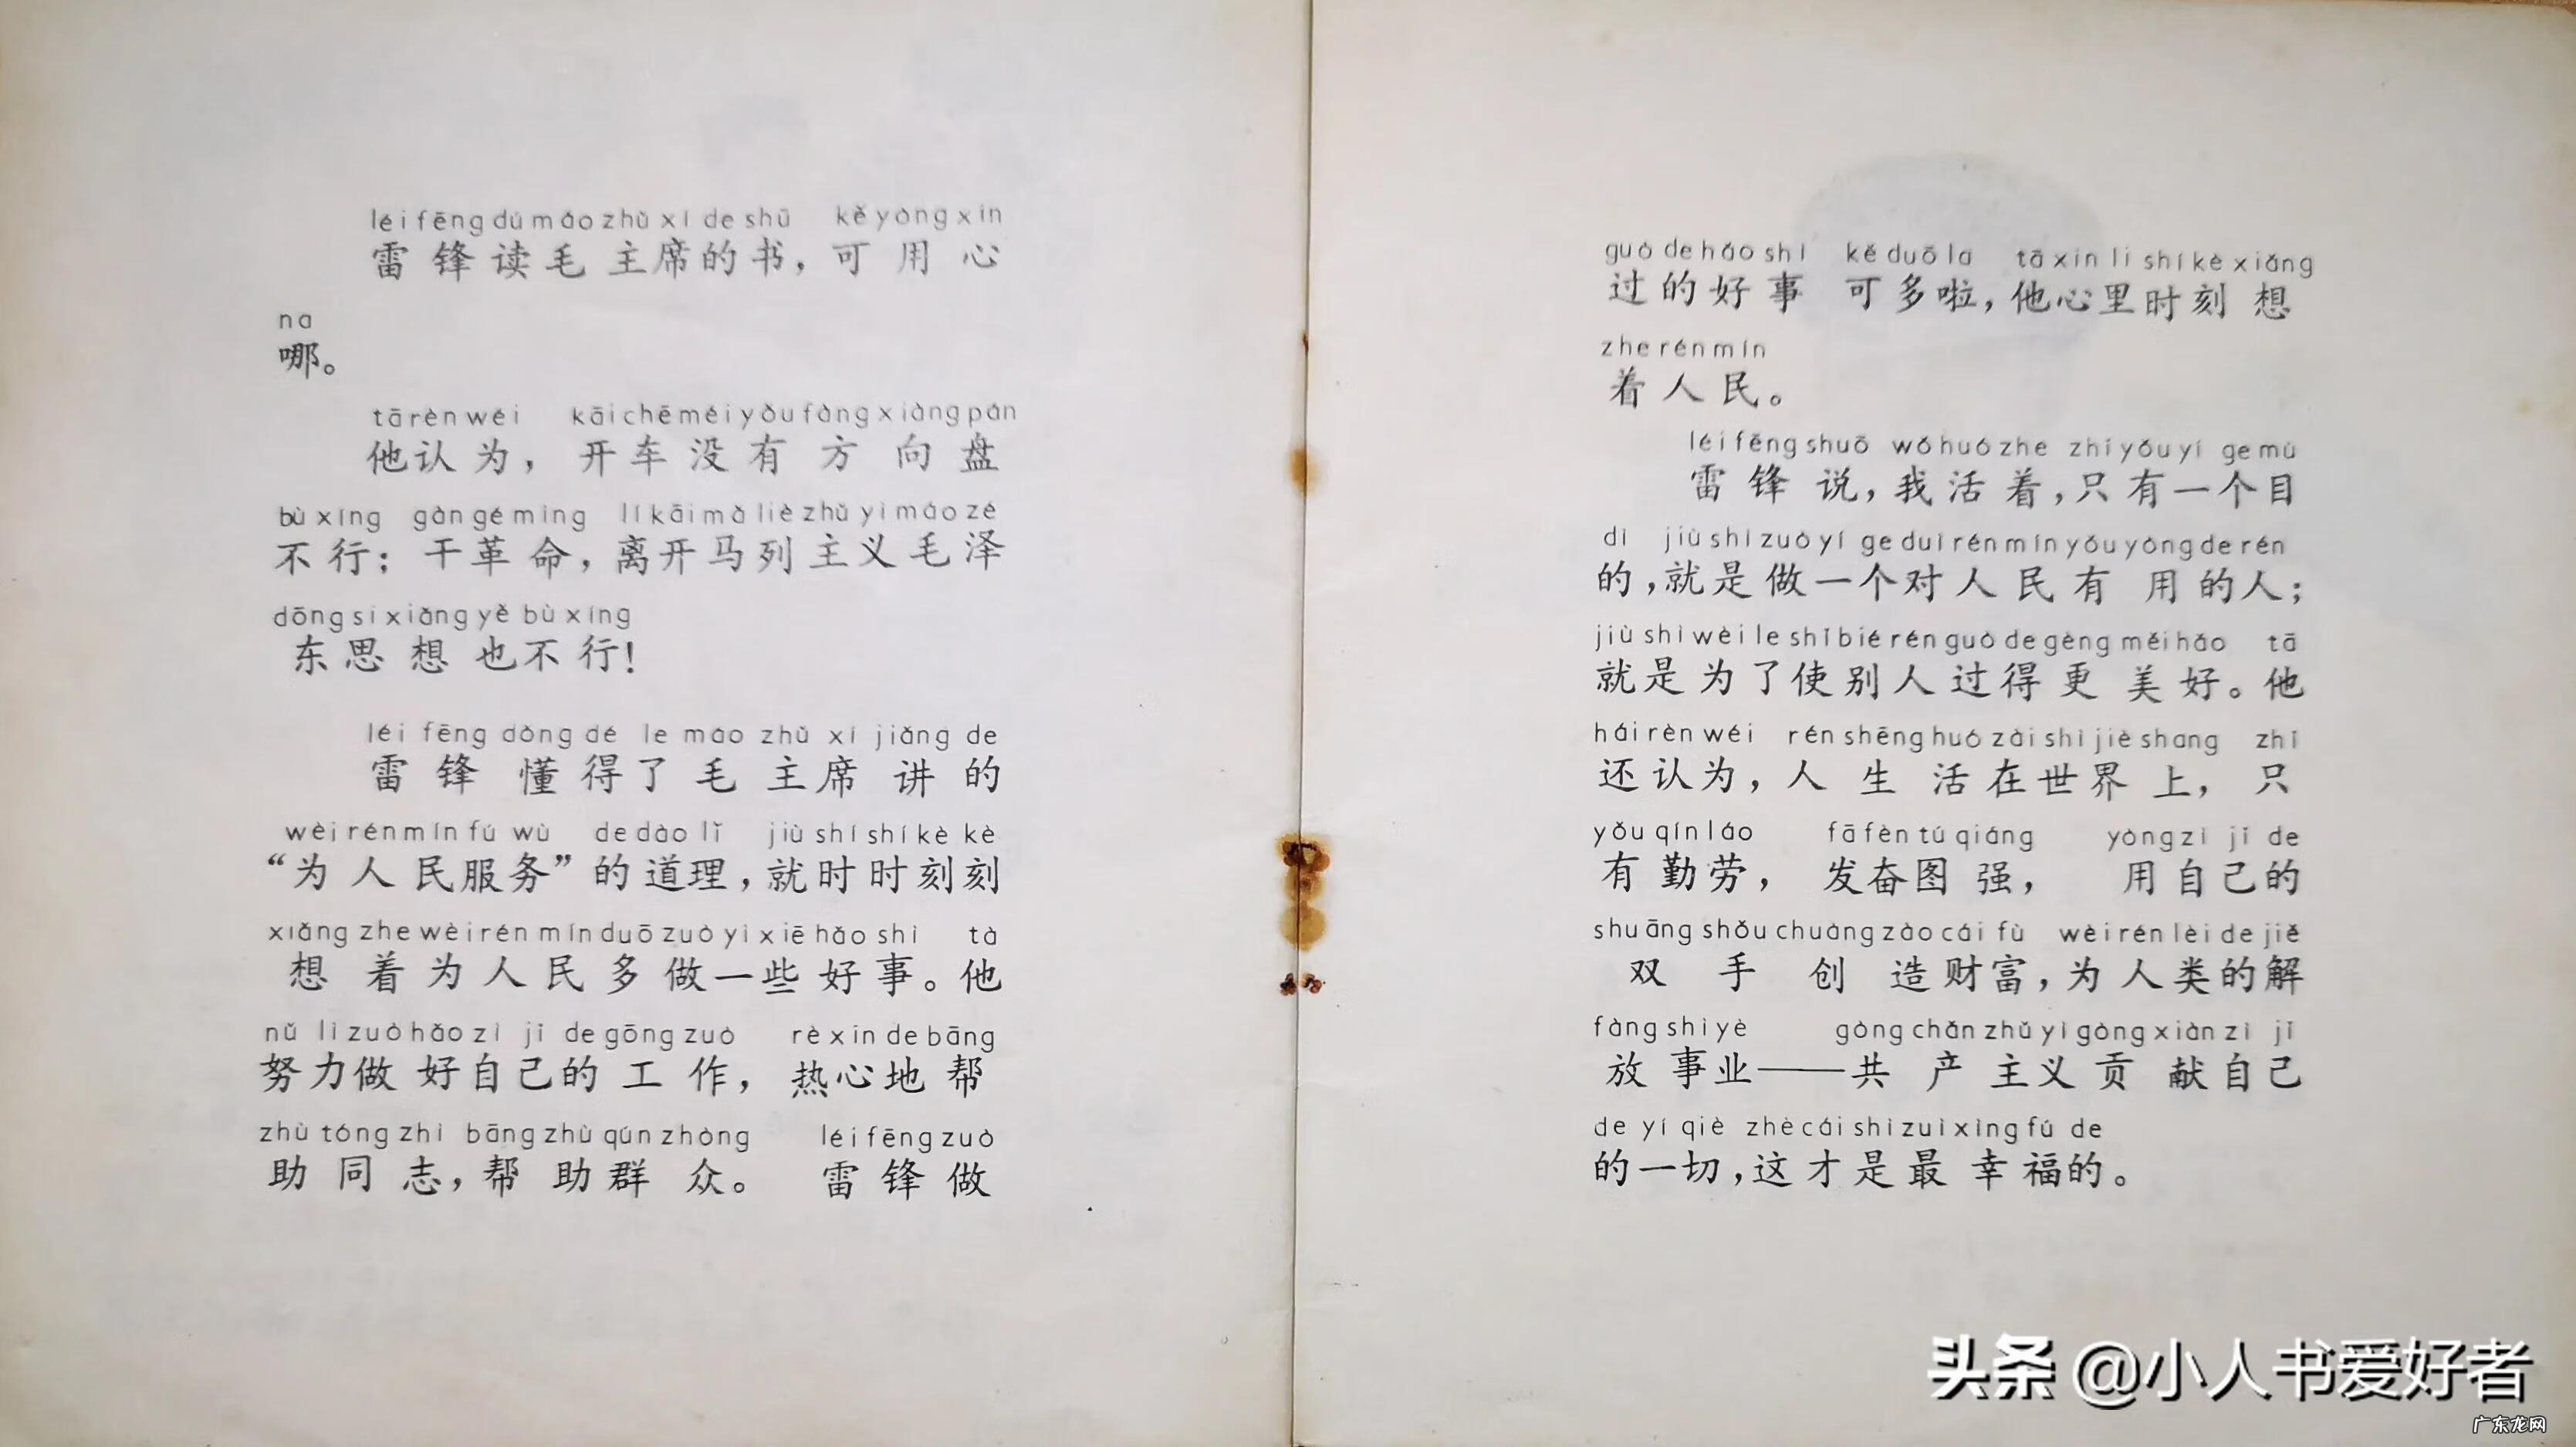 léi fēng dú máo zhǔ xí de shū kě yòng xīn
雷锋读毛主席的书，可用心
na
哪。
tā rèn wéi kāi chē méi yǒu fāng xiàng pán
他认为，开车没有方向盘
bù xíng gàn gé mìng lí kāi mǎ liè zhǔ yì máo zé
不行；干革命，离开马列主义毛泽
dōng sī xiǎng yě bù xíng
东思想也不行！
léi fēng dǒng dé le máo zhǔ xí jiǎng de
雷锋懂得了毛主席讲的
wèi rén mín fú wù de dào lǐ jiù shí shí kè kè
“为人民服务”的道理，就时时刻刻
xiǎng zhe wèi rén mín duō zuò yì xiē hǎo shì tā
想着为人民多做一些好事。他
nǔ lì zuò hǎo zì jǐ de gōng zuò rè xīn de bāng
努力做好自己的工作，热心地帮
zhù tóng zhì bāng zhù qún zhòng léi fēng zuò
助同志，帮助群众。雷锋做
guò de hǎo shì kě duō la tā xīn li shí kè xiǎng
过的好事可多啦，他心里时刻想
zhe rén mín
着人民。
léi fēng shuō wǒ huó zhe zhǐ yǒu yí ge mù
雷锋说，我活着，只有一个目
dì jiù shì zuò yí ge duì rén mín yǒu yòng de rén
的，就是做一个对人民有用的人；
jiù shì wèi le shǐ bié rén guò de gèng měi hǎo tā
就是为了使别人过得更美好。他
hái rèn wéi rén shēng huó zài shì jiè shang zhǐ
还认为，人生活在世界上，只
yǒu qín láo fā fèn tú qiáng yòng zì jǐ de
有勤劳，发奋图强，用自己的
shuāng shǒu chuàng zào cái fù wèi rén lèi de jiě
双手创造财富，为人类的解
fàng shì yè gòng chǎn zhǔ yì gòng xiàn zì jǐ
放事业——共产主义贡献自己
de yí qiè zhè cái shì zuì xìng fú de
的一切，这才是最幸福的。
头条 @小人书爱好者
广东龙网